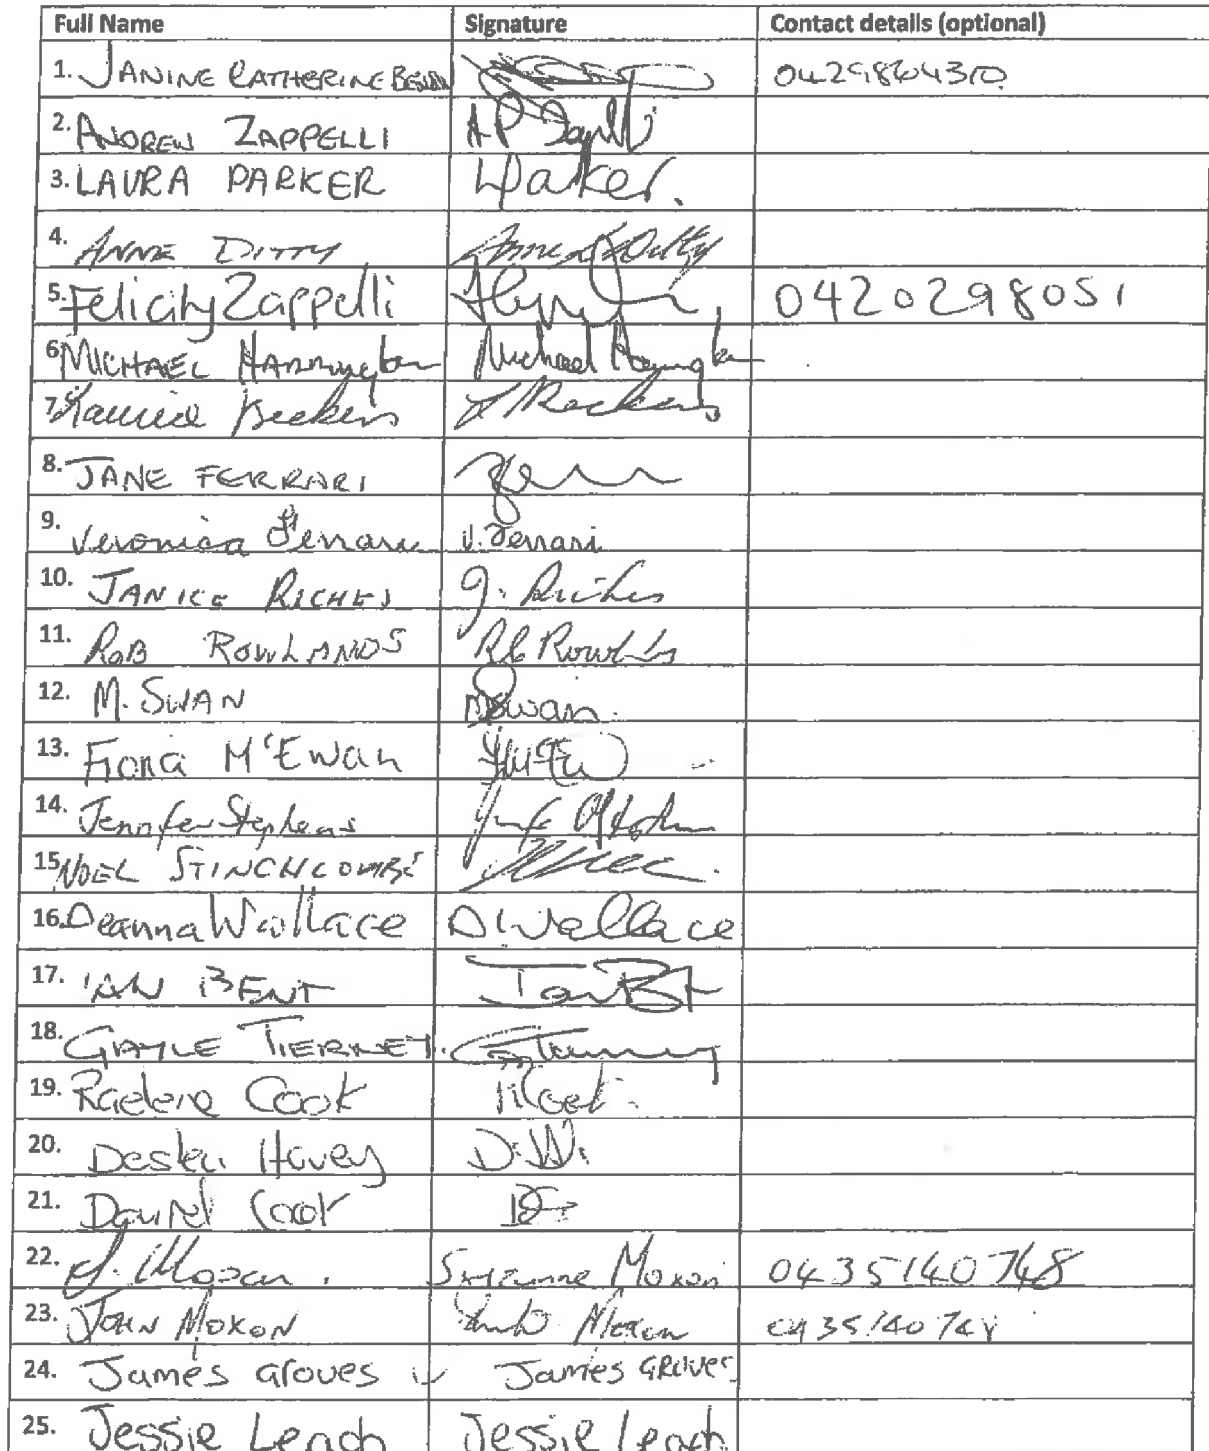 Full Name Signature Contact details (optional)
1. JANINE CATHERINE 0429864310
2. ANDREW ZAPPELLI
3. LAURA PARKER LParker.
4. ANNE DITTY Anne Ditty
5. Felicity Zappelli 0420298051
6 MICHAEL Harrington Michael Harrington
7. Beekens
8. JANE FERRARI
9. Veronica Ferrari V. Ferrari
10. JANICE RICHES J. Riches
11. ROB ROWLANDS
12. M. SWAN MSwan.
13. Fiona M'Ewan
14. Jennifer Stephens
15 NOEL STINCHCOMBE
16. Deanna Wallace D Wallace
17. IAN BENT
18. GAYLE TIERNEY.
19. Raelene Cook
20. Hovey
21. Daniel Cook
22. S. Moxon. Suzanne Moxon 0435140748
23. JOHN MOXON Moxon 0435140748
24. James Groves James GROVES
25. Jessie Leach Jessie Leach